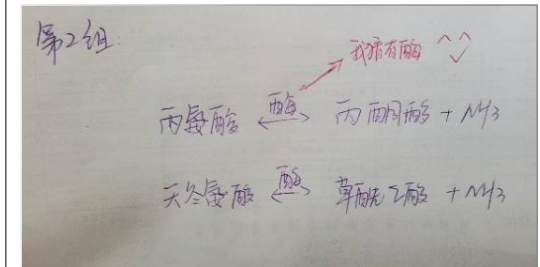 第2组:
我猜有酶 ^^
丙氨酸 酶 ⟷ 丙酮酸 + NH3
天冬氨酸 酶 ⟷ 草酰乙酸 + NH3